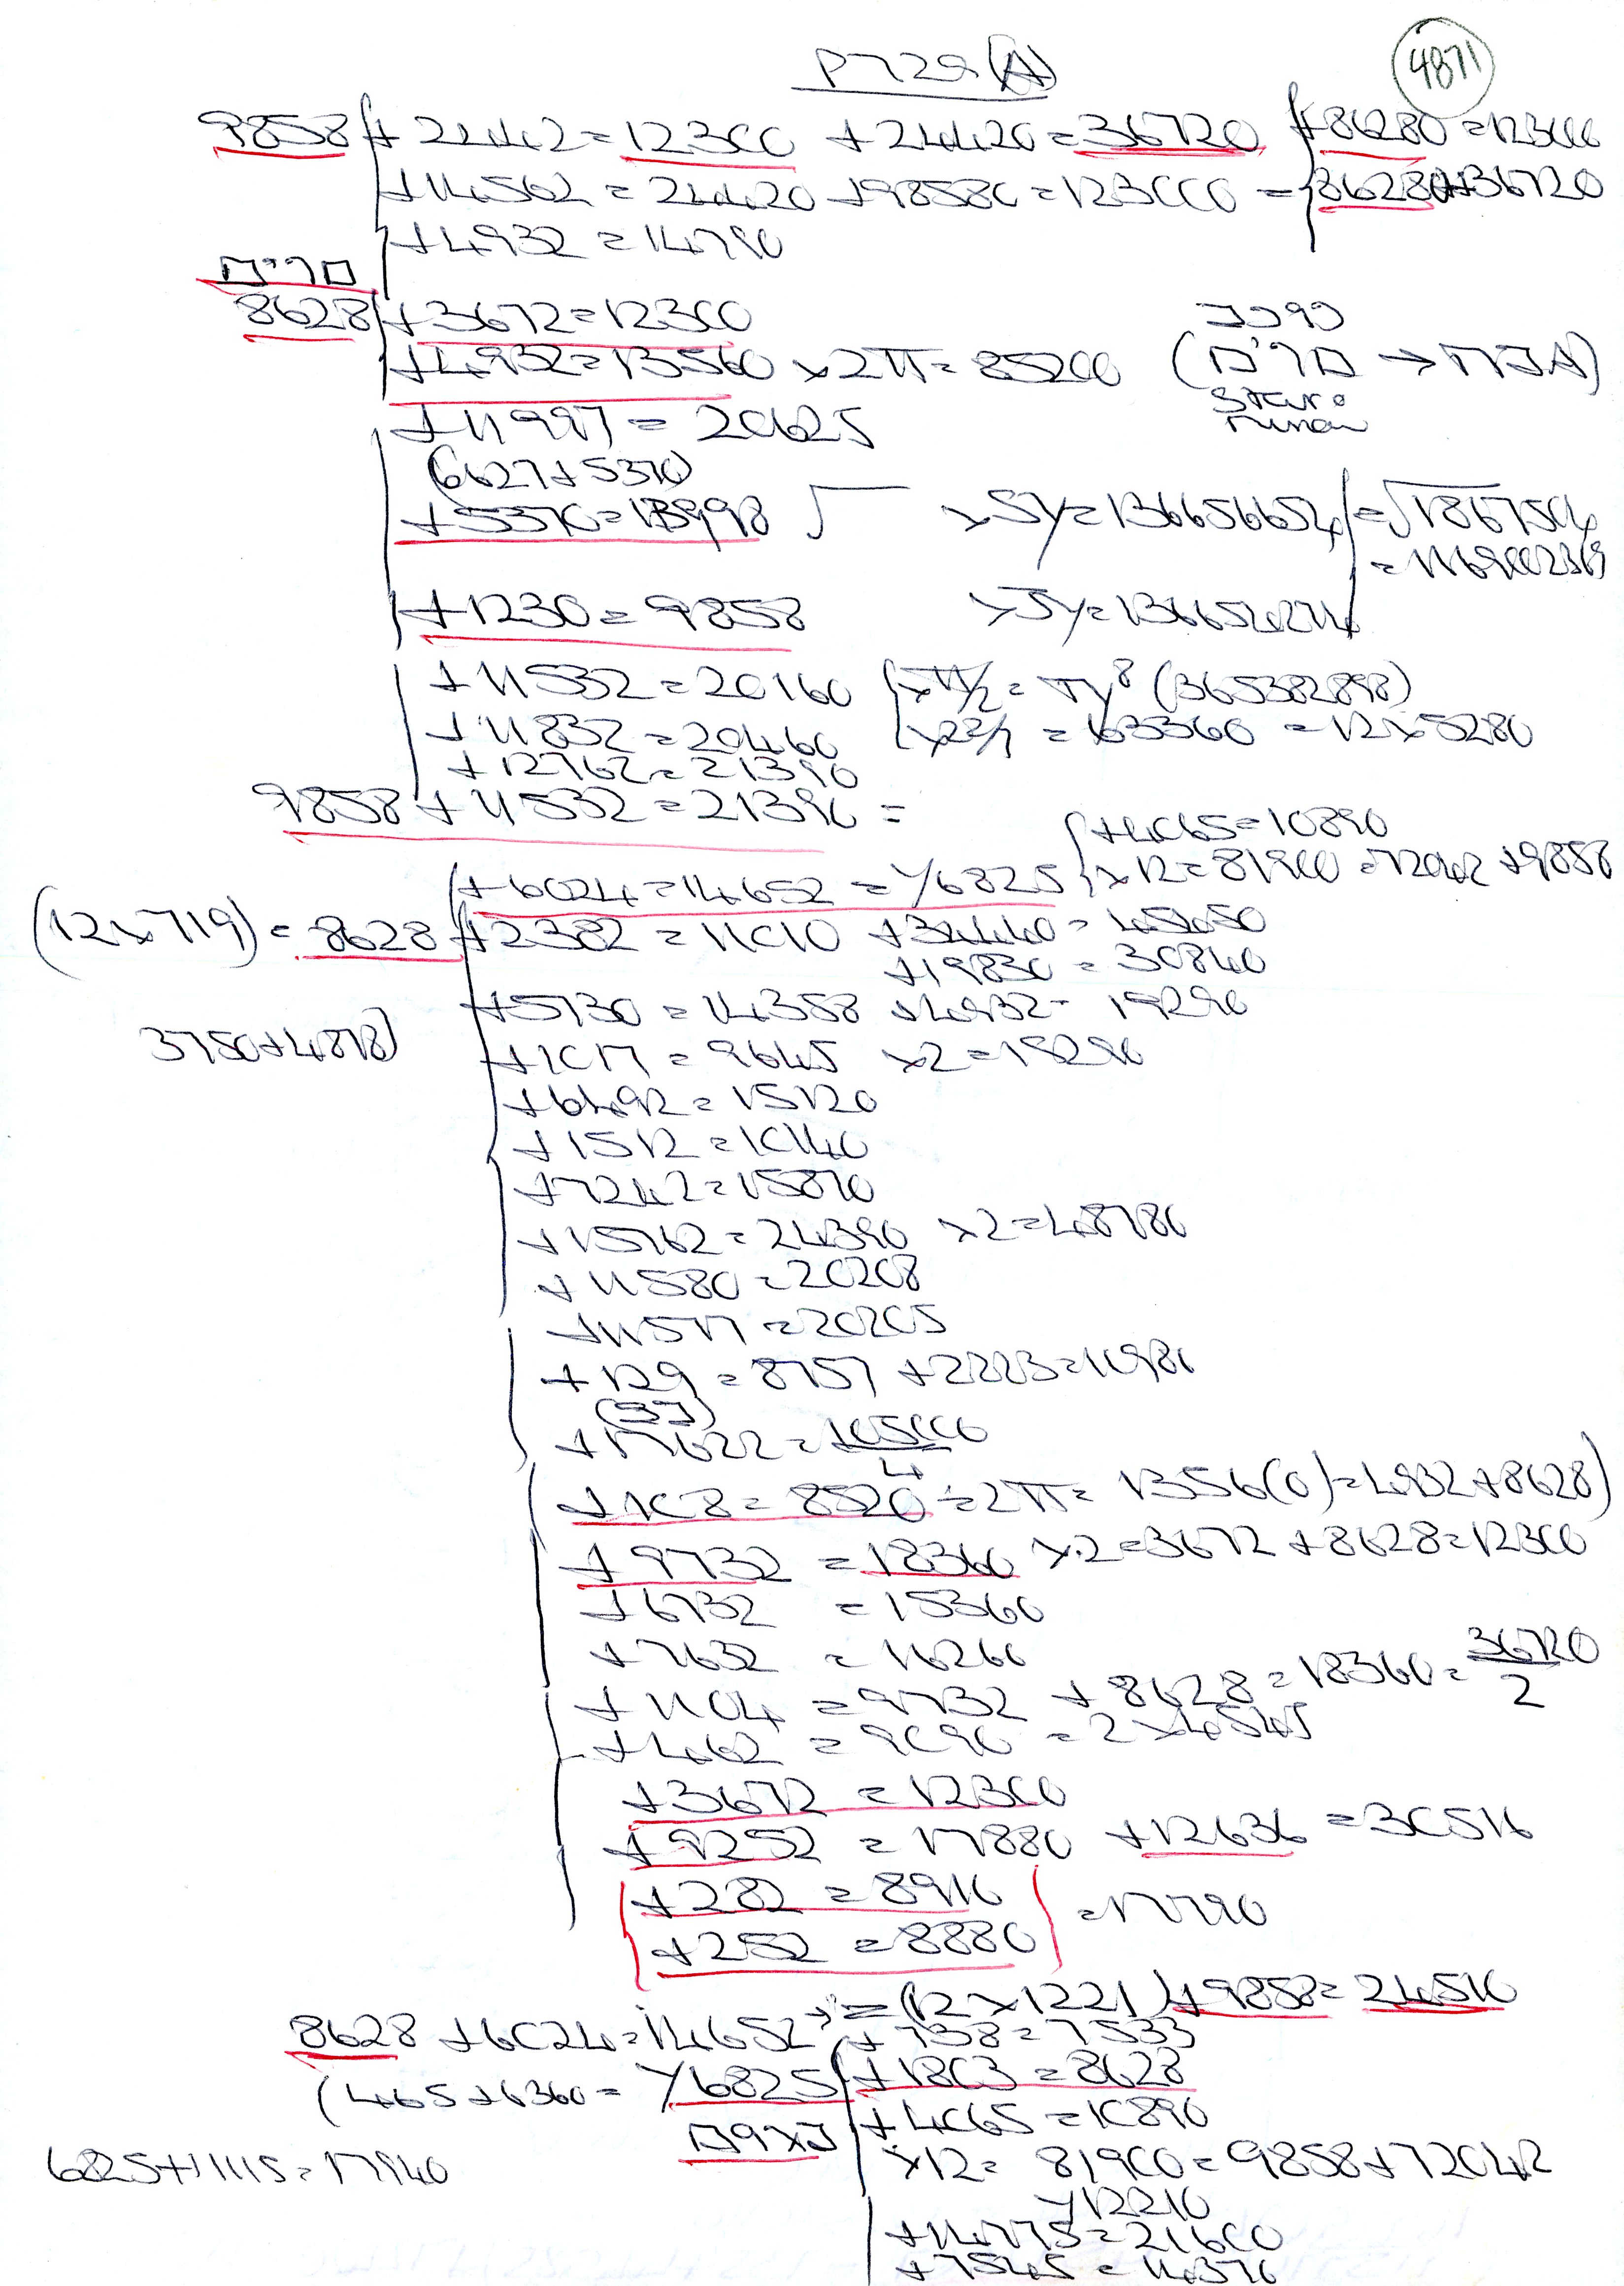 P729(A)
4871
9858 +2442=12300 +24420=36720 +86280=123000
+14562=24420 +98580=123000=86280+36720
+4932=14790
8628 +3672=12300
+4932=13560 ×2π=85200
+11997=20625
(6627+5370)
+5370=13998
+1230=9858
+11532=20160
+11832=20460 ×22/7 = 63360 = 12×5280
+12762=21390
9858+11532=21390=
+4065=10890
+6024=14652=/6825 ×12=81900=72042+9858
(12×719)=8628 +2382=11010 +34440=45450
+19830=30840
+5730=14358 +4932=19290
3750+4878)
+1017=9645 ×2=19290
+6492=15120
+1512=10140
+7242=15870
+15762=24390 ×2=48780
+11580=20208
+11577=20205
+129=8757 +2223=10980
+17622=105000/4
-108=8520 ÷2π= 1356(0)=4932+8628)
+9732=18360 ×.2=3672+8628=12300
+6732=15360
+7632=16260
+1104=9732 +8628=18360=36720/2
+462=9090=2×4545
+3672=12300
+9252=17880 +12636=30516
+282=8910
+252=8880 =17790
=(12×1221)+9858=24510
8628+6024=14652 +738=7533
(465+6360=/6825 +1803=8628
+4065=10890
6825+11115=17940 ×12=81900=9858+72042
/12210
+14775=21600
+7545=14370